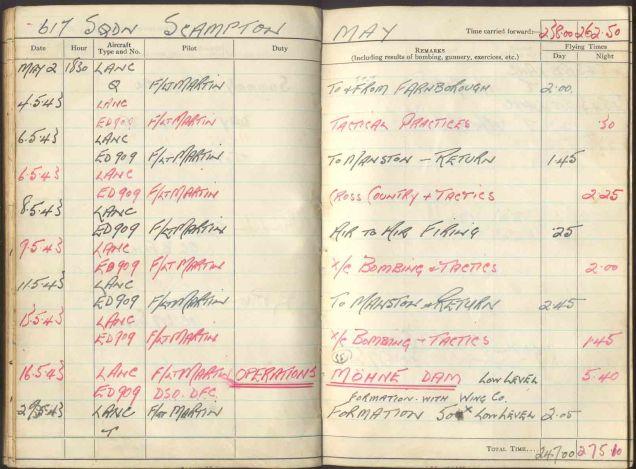 617 SQDN SCAMPTON
Date Hour Aircraft Type and No. Pilot Duty
MAY 2 1830 LANC
Q F/LT MARTIN
4.5.43 LANC
ED909 F/LT MARTIN
6.5.43 LANC
ED909 F/LT MARTIN
6.5.43 LANC
ED909 F/LT MARTIN
8.5.43 LANC
ED909 F/LT MARTIN
9.5.43 LANC
ED909 F/LT MARTIN
11.5.43 LANC
ED909 F/LT MARTIN
LANC
ED909 F/LT MARTIN
16.5.43 LANC F/LT MARTIN OPERATIONS
ED909 DSO. DFC.
LANC F/LT MARTIN
MAY Time carried forward:— 238.00 262.50
REMARKS Flying Times
(Including results of bombing, gunnery, exercises, etc.) Day Night
TO & FROM FARNBOROUGH 2.00
TACTICAL PRACTICES .30
TO MANSTON - RETURN 1.45
CROSS COUNTRY + TACTICS 2.25
AIR TO AIR FIRING .25
X/C BOMBING & TACTICS 2.00
TO MANSTON & RETURN 2.45
X/C BOMBING + TACTICS 1.45
MÖHNE DAM LOW LEVEL 5.40
FORMATION WITH WING CO.
FORMATION LOW LEVEL 2.05
TOTAL TIME.... 247.00 275.10